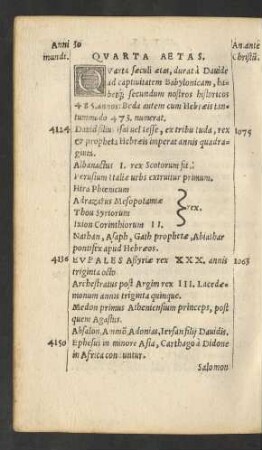 Anni 30 An.ante
mundi. QVARTA AETAS. Christū.
QVarta sæculi ætas, durat à Dauide
ad captiuitatem Babylonicam, ha-
betq; secundum nostros historicos
485. annos: Beda autem cum Hebræis tan-
tummodo 473. numerat.
4124 Dauid filius Isai uel Iesse, ex tribu Iuda, rex 1075
& propheta Hebræis imperat annis quadra-
ginta.
Albanactus I. rex Scotorum fit.
Perusium Italiæ urbs extruitur primum.
Hira Phœnicum
Adrazatus Mesopotamiæ
Thou Syriorum rex.
Ixion Corinthiorum II.
Nathan, Asaph, Gath prophetæ, Abiathar
pontifex apud Hebræos.
4136 EVPALES Assyriæ rex XXX. annis 1063
triginta octo
Archestratus post Argim rex III. Lacedæ-
monum annis triginta quinque.
Medon primus Atheniensium princeps, post
quem Agastus.
Absalon, Ammō, Adonias, Iersan filij Dauidis.
4150 Ephesus in minore Asia, Carthago à Didone
in Africa conduntur.
Salomon